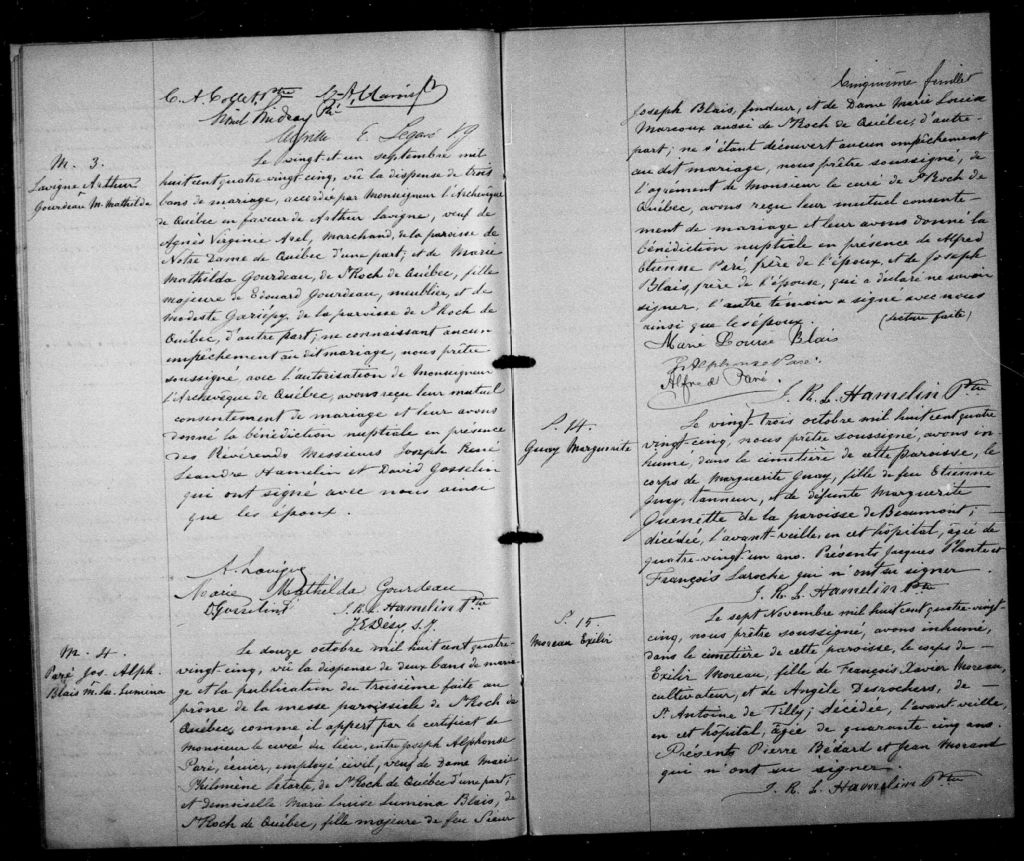 C. A. Collet Ptre
E. Legaré V G
M. 3.
Lavigne Arthur
Gourdeau M. Mathilda
Le vingt et un septembre mil
huit cent quatre-vingt cinq, vû la dispense de trois
bans de mariage, accordée par Monseigneur l'Archevêque
de Québec en faveur de Arthur Lavigne, veuf de
Agnès Virginie Azel, Marchand, de la paroisse de
Notre Dame de Québec d'une part; et de Marie
Mathilda Gourdeau, de St Roch de Québec, fille
majeure de Edouard Gourdeau, meublier, et de
Modeste Gariépy, de la paroisse de St Roch de
Québec, d'autre part; ne connaissant aucun
empêchement au dit mariage, nous prêtre
soussigné, avec l'autorisation de Monseigneur
l'Archevêque de Québec, avons reçu leur mutuel
consentement de mariage et leur avons
donné la bénédiction nuptiale en présence
des Révérends Messieurs Joseph René
Léandre Hamelin et David Gosselin
qui ont signé avec nous ainsi
que les époux.
A. Lavigne
Marie Mathilda Gourdeau
D. Gosselin Ptre J. R. L. Hamelin Ptre
J. E. Désy, S. J.
M. 4.
Paré Jos. Alph.
Blais M. Lse. Lumina
Le douze octobre mil huit cent quatre
vingt cinq, vû la dispense de deux bans de maria-
ge et la publication du troisième faite au
prône de la messe paroissiale de St Roch de
Québec, comme il appert par le certificat de
Monsieur le curé du lieu, entre Joseph Alphonse
Paré, écuier, employé civil, veuf de Dame Marie
Philomène Letarte, de St Roch de Québec d'une part;
et demoiselle Marie Louise Lumina Blais, de
St Roch de Québec, fille majeure de feu Sieur
Cinquième feuillet
Joseph Blais, fondeur, et de Dame Marie Louise
Marsoux aussi de St Roch de Québec, d'autre-
part; ne s'étant découvert aucun empêchement
au dit mariage, nous prêtre soussigné, de
l'agrément de Monsieur le curé de St Roch de
Québec, avons reçu leur mutuel consente-
ment de mariage et leur avons donné la
bénédiction nuptiale en présence de Alfred
Etienne Paré, frère de l'époux, et de Joseph
Blais, frère de l'épouse, qui a déclaré ne savoir
signer, l'autre témoin a signé avec nous
ainsi que les époux. (lecture faite)
Marie Louise Blais
J. Alphonse Paré.
Alfred Paré.
J. R. L. Hamelin Ptre
S. 14.
Guay Marguerite
Le vingt-trois octobre mil huit cent quatre
vingt-cinq, nous prêtre soussigné, avons in-
humé, dans le cimetière de cette paroisse, le
corps de Marguerite Guay, fille de feu Etienne
Guay, tanneur, et de défunte Marguerite
Quenette de la paroisse de Beaumont; –
décédée, l'avant-veille, en cet hôpital, âgée de
quatre-vingt-un ans. Présents Jacques Plante et
François Laroche qui n'ont su signer.
J. R. L. Hamelin Ptre
S. 15.
Moreau Exilir
Le sept Novembre mil huit cent quatre-vingt-
cinq, nous prêtre soussigné, avons inhumé,
dans le cimetière de cette paroisse, le corps de –
Exilir Moreau, fille de François Xavier Moreau,
cultivateur, et de Angèle Desrochers, de –
St Antoine de Tilly; décédée, l'avant veille,
en cet hôpital, âgée de quarante cinq ans.
Présents Pierre Bédard et Jean Morand
qui n'ont su signer.
J. R. L. Hamelin Ptre